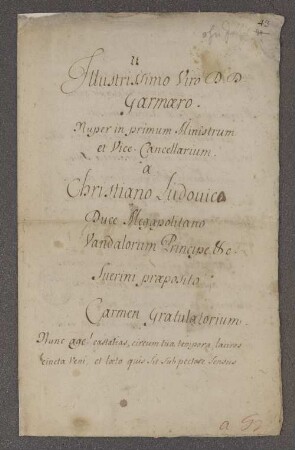 Illustrissimo Viro D D
Garmaero.
Nuper in primum Ministrum
et Vice-Cancellarium.
a
Christiano Ludovico
Duce Megapolitano
Vandalorum Principe &c
Sverini praeposito
Carmen Gratulatorium.
Nunc age! castalias, circum tua tempora, lauros
Cincta veni, et laeto quis sis sub pectore sensus